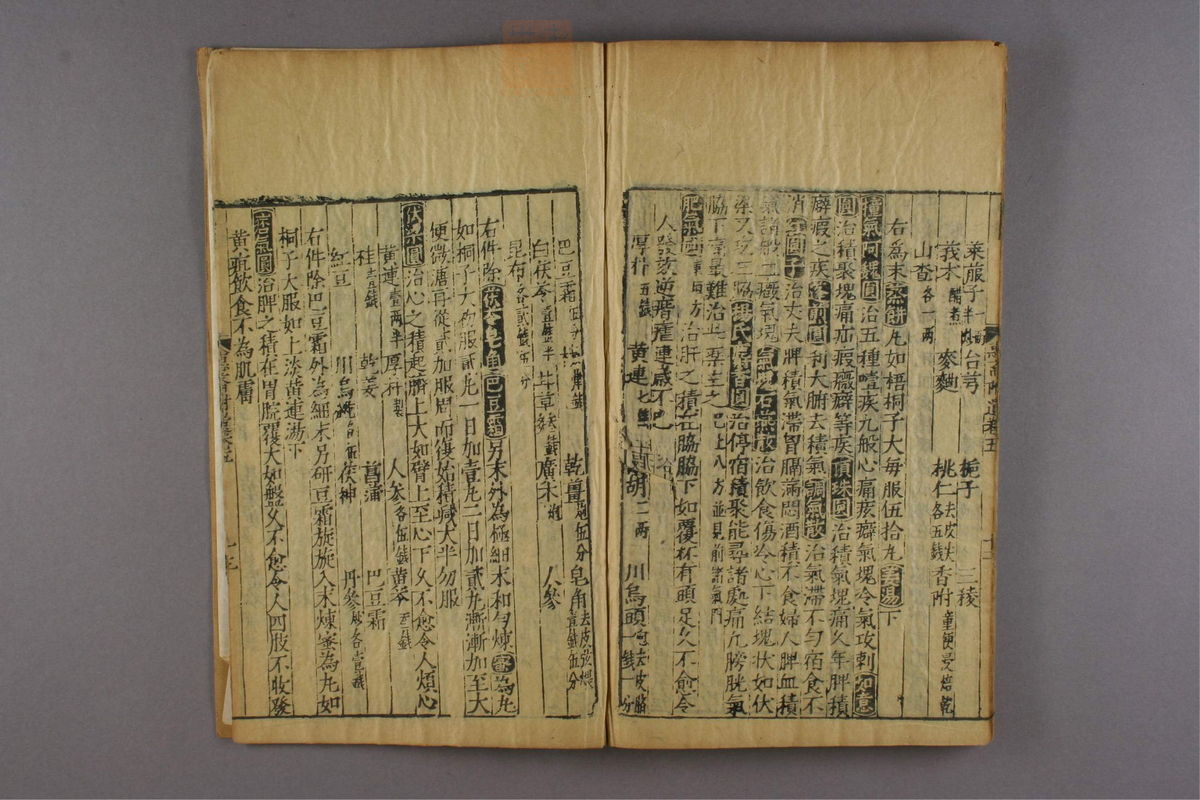 萊菔子 台芎 梔子 三稜
莪木醋煮 麥麯 桃仁去皮尖 香附童便浸焙乾
山查各一兩 各五錢
右為末蒸餅丸如梧桐子大每服伍拾丸姜湯下
撞氣阿魏圓治五種噎疾九般心痛痃癖氣塊冷氣攻刺如意
圓治積聚塊痛疝瘕癥癖等疾頂珠圓治積氣塊痛久年脾積
癖瘕之疾 利大腑去積氣調氣散治氣滯不勻宿食不
消 圓子治丈夫脾積氣滯胷膈滿悶酒積不食婦人脾血積
氣諸般 癥氣塊 石 散治飲食傷冷心下結塊狀如伏
梁 楊氏 香圓治停宿積聚能尋諸處痛凡膀胱氣
脇下 最難治此藥主之已上八方並見前諸氣門
肥氣圓東垣方治肝之積在脇脇下如覆杯有頭足久不愈令
人發 逆 瘧連歲不已
厚朴五錢 黃連七錢 胡二兩 川烏頭一錢二分炮去皮臍
巴豆霜 乾薑炮伍分 皂角去皮弦煨壹錢伍分
白茯苓壹錢半 廣朮 人參
昆布各貳錢
右件除茯苓皂角巴豆霜另末外為極細末和勻煉蜜為丸
如桐子大初服貳丸一日加壹丸二日加貳丸漸漸加至大
便微溏再從貳加服周而復始積減大半勿服
伏梁圓治心之積起臍上大如臂上至心下久不愈令人煩心
黃連壹兩半 厚朴製 人參各伍錢 黃芩
桂 乾姜 菖蒲 巴豆霜
紅豆 川烏 茯神 丹參
右件除巴豆霜外為細末另研豆霜旋旋入末煉蜜為丸如
桐子大服如上淡黃連湯下
痞氣圓治脾之積在胃脘覆大如盤久不愈令人四肢不收發
黃疸飲食不為肌膚